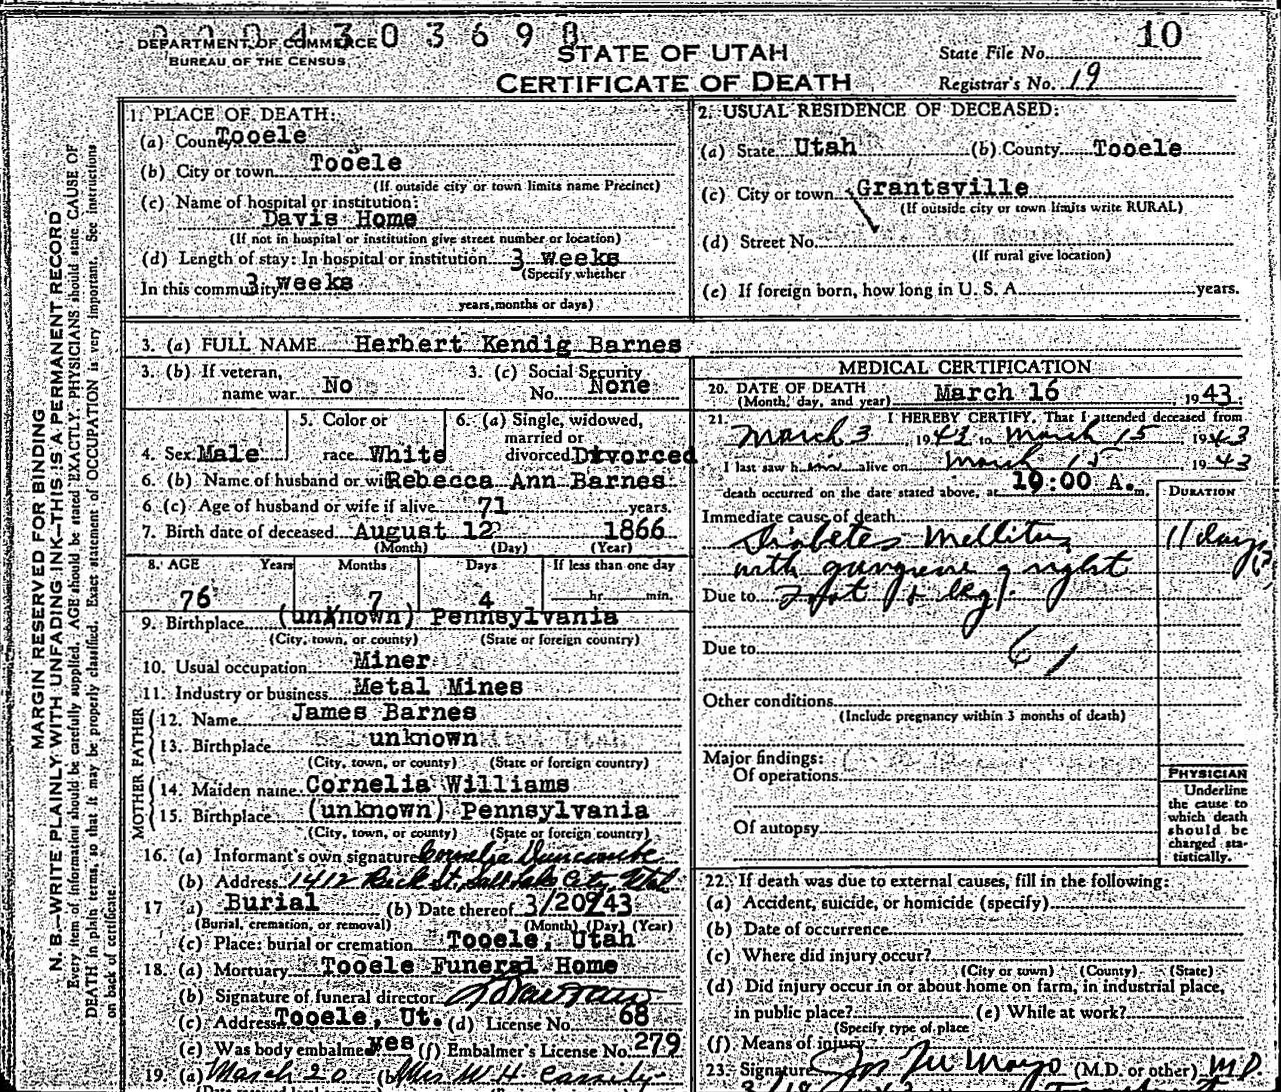 004303698
DEPARTMENT OF COMMERCE
BUREAU OF THE CENSUS
STATE OF UTAH
CERTIFICATE OF DEATH
State File No. 10
Registrar's No. 19
MARGIN RESERVED FOR BINDING
N. B.—WRITE PLAINLY WITH UNFADING INK—THIS IS A PERMANENT RECORD
Every item of information should be carefully supplied. AGE should be stated EXACTLY. PHYSICIANS should state CAUSE OF
DEATH in plain terms, so that it may be properly classified. Exact statement of OCCUPATION is very important. See instructions
on back of certificate.
1. PLACE OF DEATH:
(a) County Tooele
(b) City or town Tooele
(If outside city or town limits name Precinct)
(c) Name of hospital or institution:
Davis Home
(If not in hospital or institution give street number or location)
(d) Length of stay: In hospital or institution 3 weeks
(Specify whether
In this community 3 weeks
years, months or days)
2. USUAL RESIDENCE OF DECEASED:
(a) State Utah (b) County Tooele
(c) City or town Grantsville
(If outside city or town limits write RURAL)
(d) Street No.
(If rural give location)
(e) If foreign born, how long in U. S. A. years.
3. (a) FULL NAME Herbert Kendig Barnes
3. (b) If veteran, name war No
3. (c) Social Security No. None
4. Sex Male
5. Color or race White
6. (a) Single, widowed, married or divorced Divorced
6. (b) Name of husband or wife Rebecca Ann Barnes
6 (c) Age of husband or wife if alive 71 years.
7. Birth date of deceased August 12 1866
(Month) (Day) (Year)
8. AGE Years Months Days If less than one day
76 7 4 hr. min.
9. Birthplace (unknown) Pennsylvania
(City, town, or county) (State or foreign country)
10. Usual occupation Miner
11. Industry or business Metal Mines
FATHER
12. Name James Barnes
13. Birthplace unknown
(City, town, or county) (State or foreign country)
MOTHER
14. Maiden name Cornelia Williams
15. Birthplace (unknown) Pennsylvania
(City, town, or county) (State or foreign country)
16. (a) Informant's own signature Cornelia Duncombe
(b) Address 1412 St. Salt Lake City, Utah
17 a) Burial (b) Date thereof 3/20/43
(Burial, cremation, or removal) (Month) (Day) (Year)
(c) Place: burial or cremation Tooele, Utah
18. (a) Mortuary Tooele Funeral Home
(b) Signature of funeral director
(c) Address Tooele, Ut. (d) License No. 68
(e) Was body embalmed yes (f) Embalmer's License No. 279
19. (a) March 20 (b) Mrs W. H. Cassity
MEDICAL CERTIFICATION
20. DATE OF DEATH March 16 1943.
(Month, day, and year)
21. I HEREBY CERTIFY, That I attended deceased from
March 3, 1943 to March 15 1943
I last saw him alive on March 15 1943
death occurred on the date stated above, at 10:00 A. m.
DURATION
Immediate cause of death
Diabetes Mellitus 11 days
with gangrene of right
Due to foot (& leg).
Due to
61
Other conditions
(Include pregnancy within 3 months of death)
Major findings:
Of operations
Of autopsy
PHYSICIAN
Underline
the cause to
which death
should be
charged sta-
tistically.
22. If death was due to external causes, fill in the following:
(a) Accident, suicide, or homicide (specify)
(b) Date of occurrence
(c) Where did injury occur?
(City or town) (County) (State)
(d) Did injury occur in or about home on farm, in industrial place,
in public place? (e) While at work?
(Specify type of place
(f) Means of injury
23. Signature Jos. M. Mayo (M.D. or other) M.D.